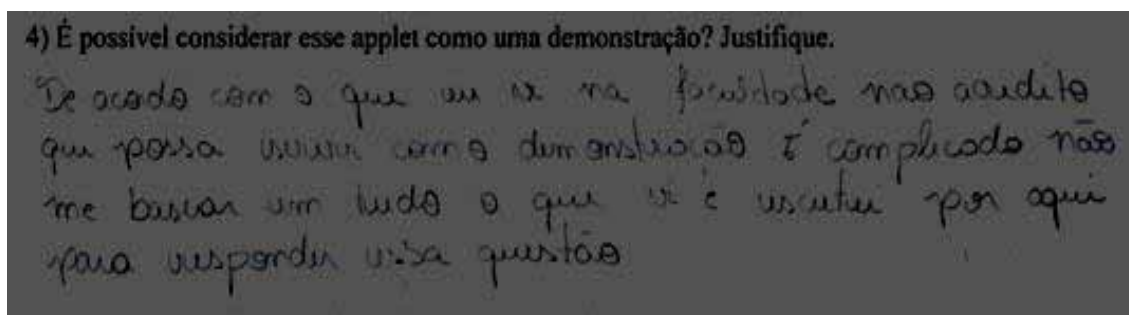 4) É possível considerar esse applet como uma demonstração? Justifique.
De acordo com o que eu vi na faculdade não acredito
que possa servir como demonstração É complicado não
me basear em tudo o que vi e escutei por aqui
para responder essa questão